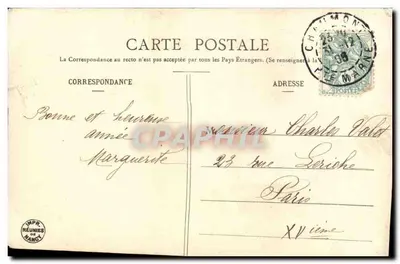 CARTE POSTALE
La Correspondance au recto n'est pas acceptée par tous les Pays Étrangers. (Se renseigner à la
CORRESPONDANCE
ADRESSE
CHAUMONT
HTE MARNE
Bonne et heureuse
année
Marguerite
Monsieur Charles Valot
23 rue Leriche
Paris
XVième
IMPR.
RÉUNIES
DE
NANCY